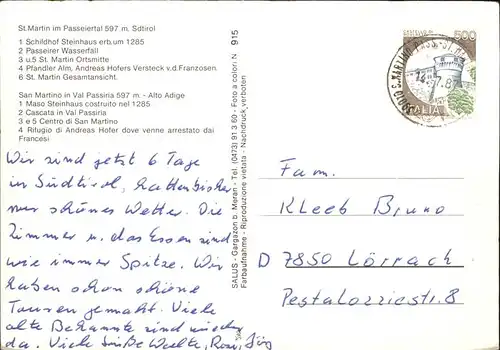 St.Martin im Passeiertal 597 m. Sdtirol
1 Schildhof Steinhaus erb.um 1285
2 Passeirer Wasserfall
3 u.5 St. Martin Ortsmitte
4 Pfandler Alm, Andreas Hofers Versteck v.d.Franzosen.
6 St. Martin Gesamtansicht.
San Martino in Val Passiria 597 m. - Alto Adige
1 Maso Steinhaus costruito nel 1285
2 Cascata in Val Passiria
3 e 5 Centro di San Martino
4 Rifugio di Andreas Hofer dove venne arrestato dai
Francesi
Wir sind jetzt 6 Tage
in Südtirol, hatten bisher
nur schönes Wetter. Die
Zimmer u. das Essen sind
wie immer Spitze. Wir
haben schon schöne
Touren gemacht. Viele
alte Bekannte sind wieder
da. Viele Grüße Walter, Rosi, Jörg
SALUS - Gargazon b. Meran - Tel. (0473) 91 3 60 - Foto a colori: N 915
Farbaufnahme - Riproduzione vietata - Nachdruck verboten
500
ITALIA
Fam.
Kleeb Bruno
D 7850 Lörrach
Pestalozzistr. 8